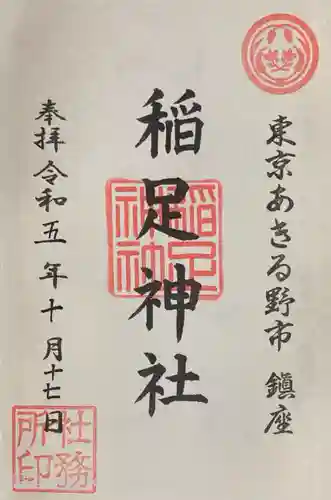 東京あきる野市 鎮座
稲足神社
稲足神社
奉拝 令和五年十月十七日
社務所印